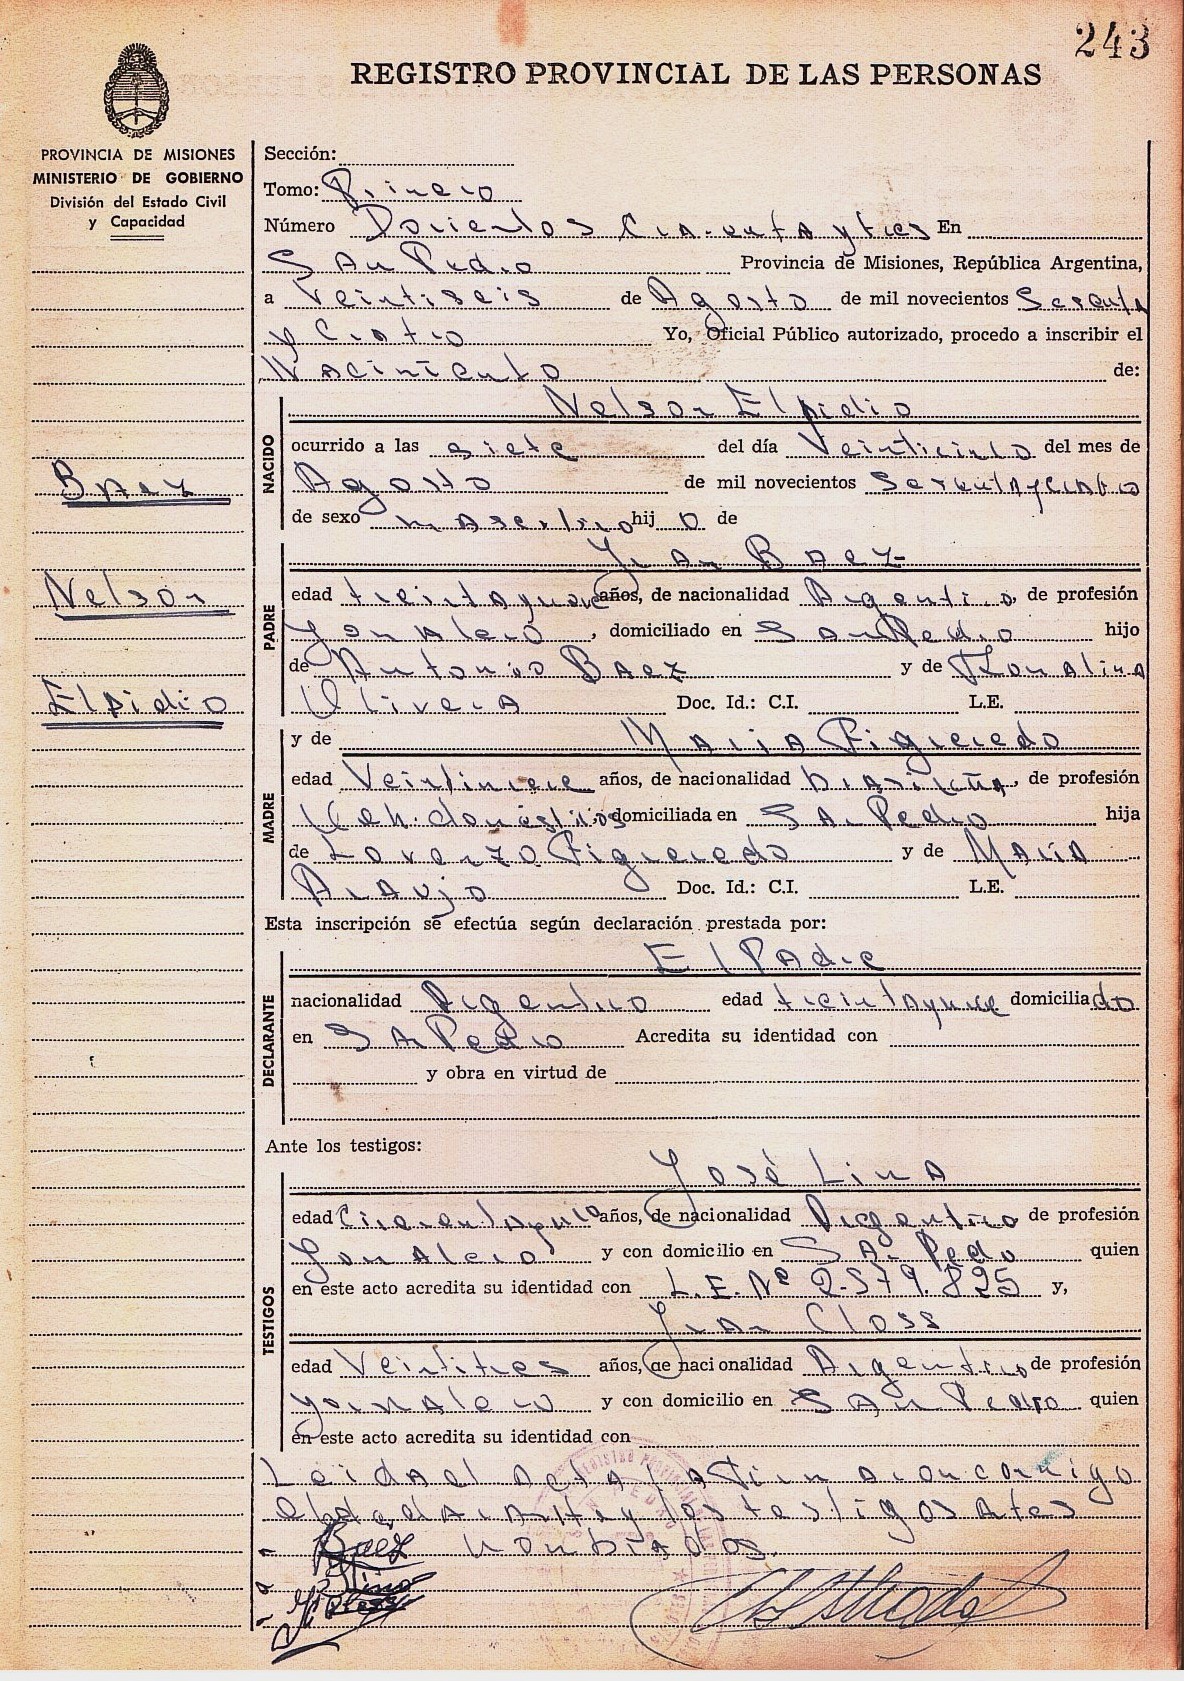 243
REGISTRO PROVINCIAL DE LAS PERSONAS
PROVINCIA DE MISIONES
MINISTERIO DE GOBIERNO
División del Estado Civil
y Capacidad
Sección:
Tomo: Primero
Número Doscientos Cuarentaytres En
San Pedro Provincia de Misiones, República Argentina,
a Veintiseis de Agosto de mil novecientos Sesenta
y Cuatro Yo, Oficial Público autorizado, procedo a inscribir el
Nacimiento de:
NACIDO
Nelson Elpidio
ocurrido a las siete del día Veinticinco del mes de
Agosto de mil novecientos Sesentaycuatro
de sexo masculino hijo de
Baez
Nelson
Elpidio
PADRE
Juan Baez
edad treintaynueve años, de nacionalidad Argentino, de profesión
Jornalero, domiciliado en San Pedro hijo
de Antonio Baez y de
Olivera Doc. Id.: C.I. L.E.
MADRE
y de Maria Figueredo
edad Veintinueve años, de nacionalidad brasileña, de profesión
domiciliada en San Pedro hija
de Lorenzo Figueredo y de Maria
Araujo Doc. Id.: C.I. L.E.
Esta inscripción se efectúa según declaración prestada por:
DECLARANTE
El Padre
nacionalidad Argentino edad treintaynueve domiciliado
en San Pedro Acredita su identidad con
y obra en virtud de
Ante los testigos:
TESTIGOS
José Lina
edad años, de nacionalidad Argentino de profesión
Jornalero y con domicilio en San Pedro quien
en este acto acredita su identidad con L.E. Nº 2.579.825 y,
Juan Closs
edad Veintitres años, de nacionalidad Argentino de profesión
Jornalero y con domicilio en San Pedro quien
en este acto acredita su identidad con
Leida el Acta la firman con conmigo
el declarante y los testigos antes
Baez nombrados.